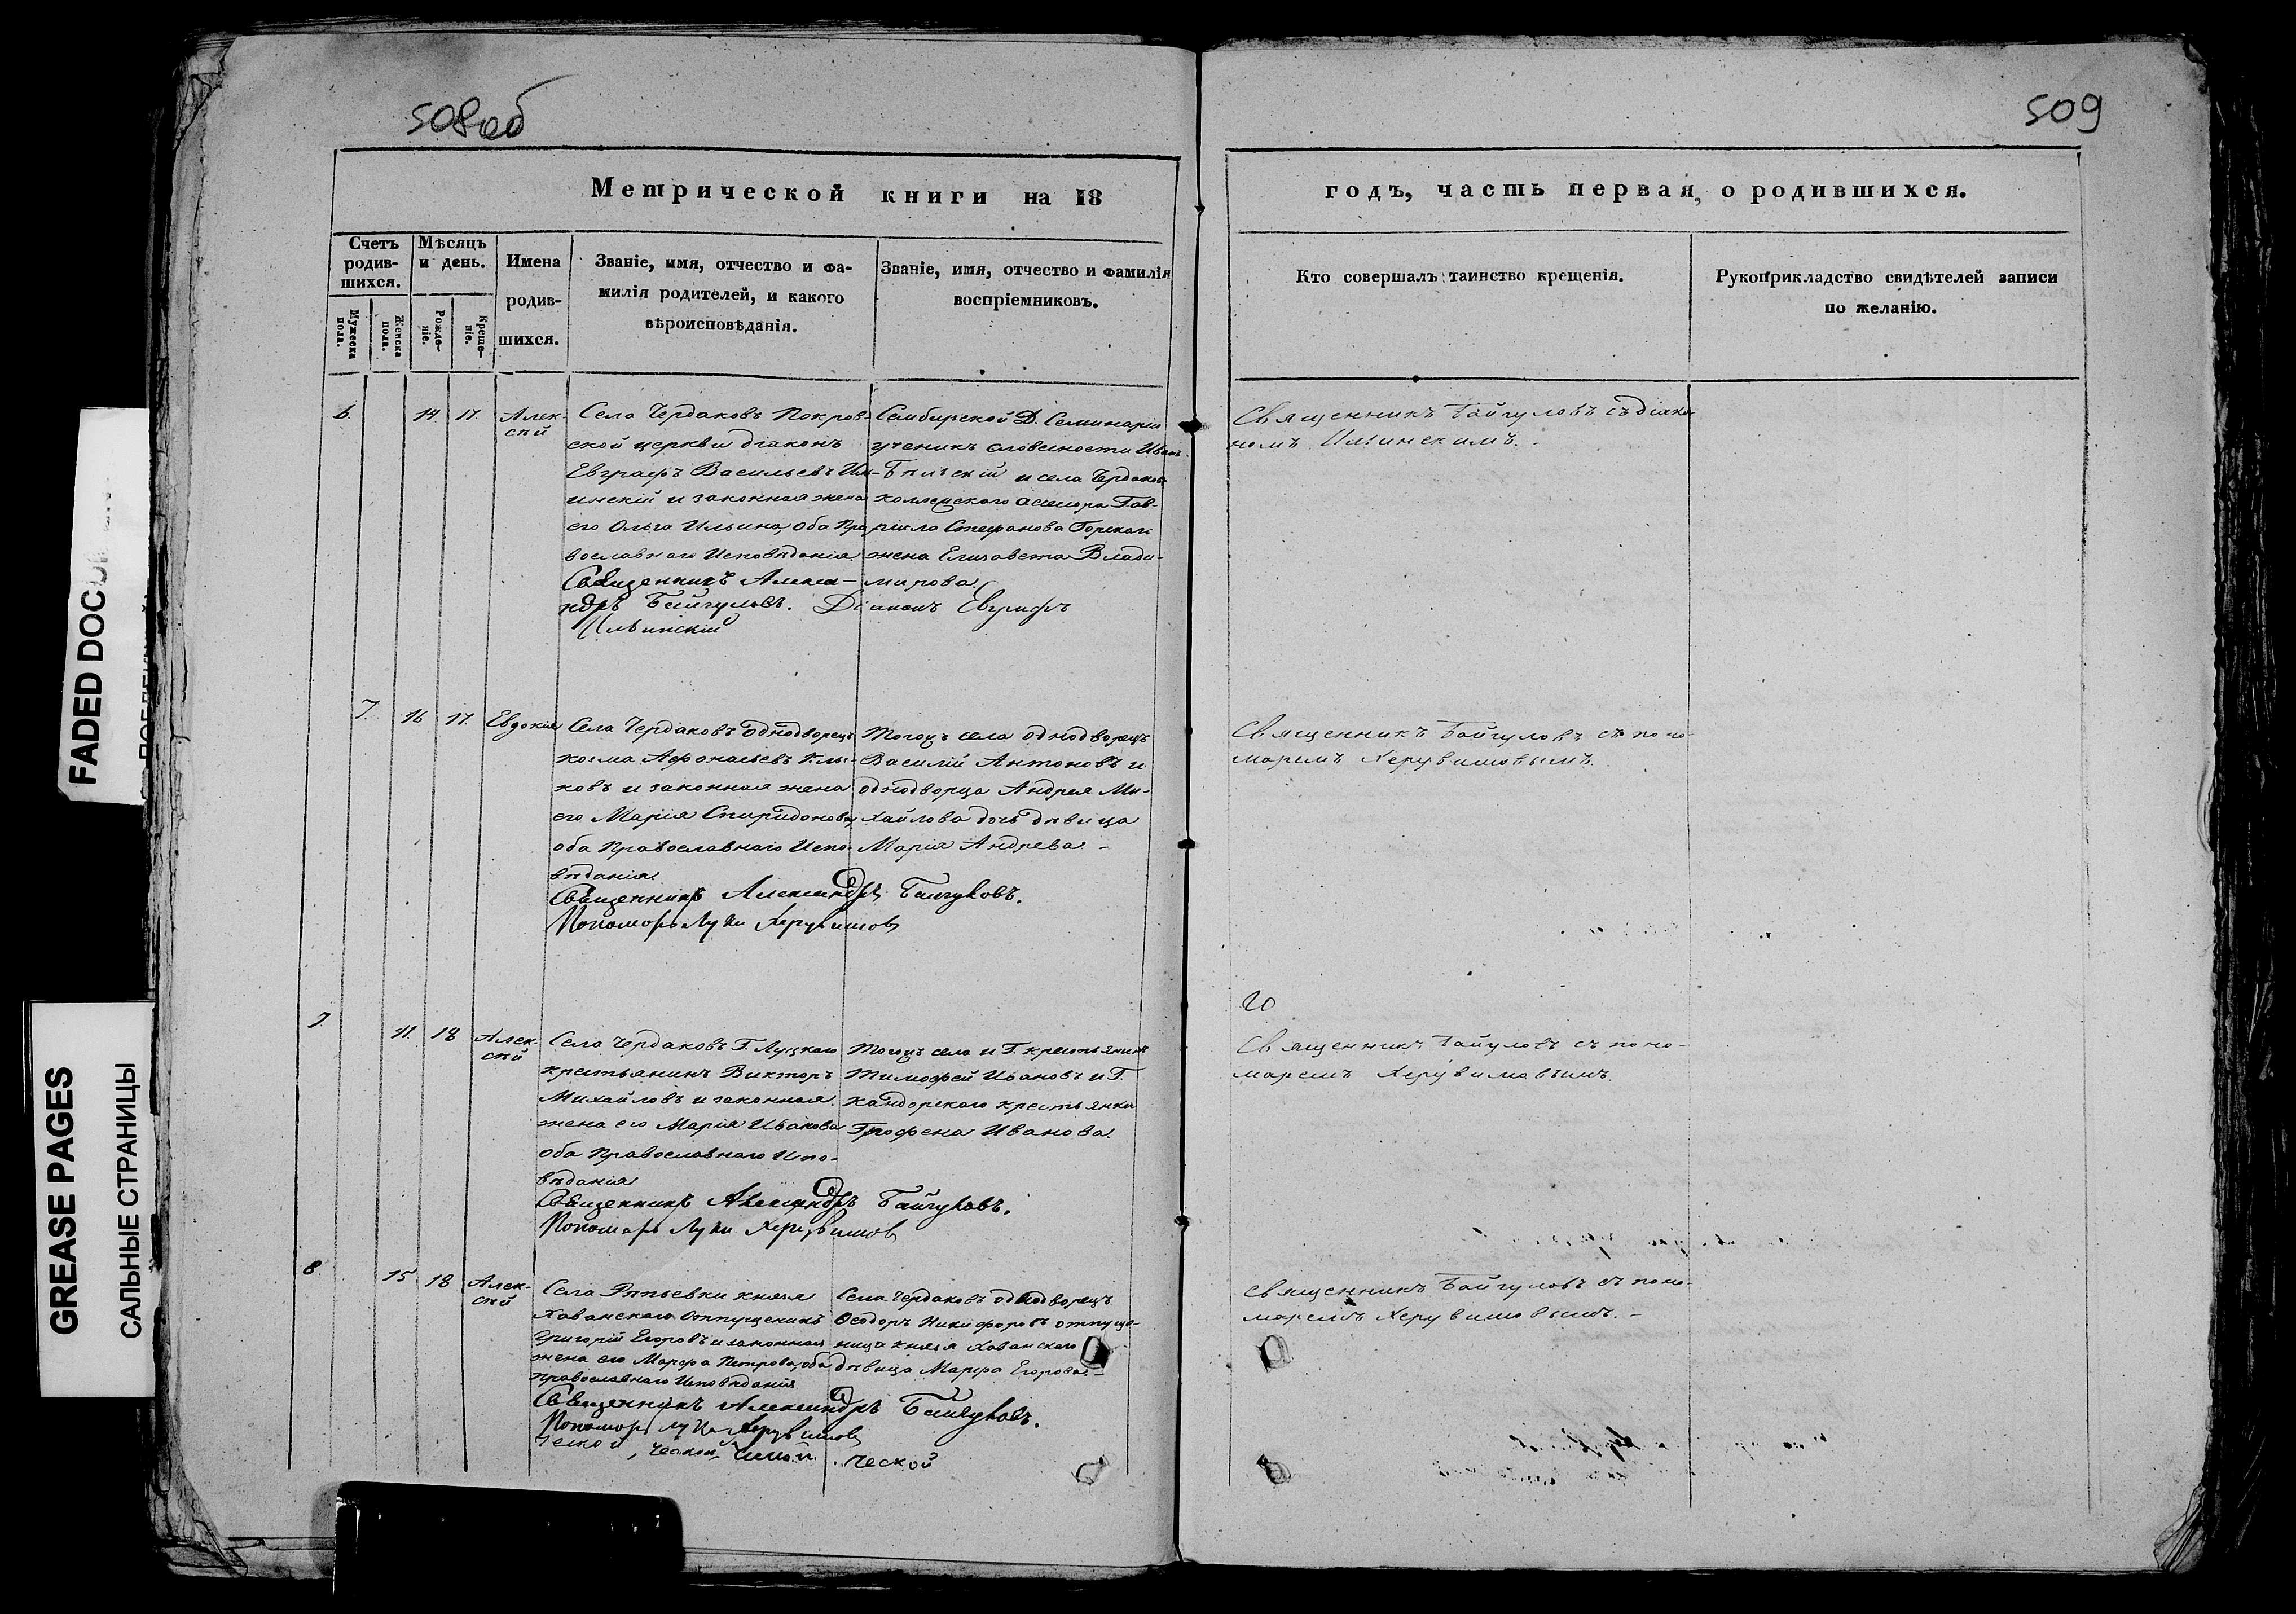 508об
509
Метрической книги на 18
годъ, часть первая, о родившихся.
Счетъ родив-шихся.
Мѣсяцъ и день.
Имена родив-шихся.
Званіе, имя, отчество и фа-
милія родителей, и какого
вѣроисповѣданія.
Званіе, имя, отчество и фамилія
воспріемниковъ.
Кто совершалъ таинство крещенія.
Рукоприкладство свидѣтелей записи
по желанію.
Мужеска пола.
Женска пола.
Рожде-ніе.
Креще-ніе.
6. 14 17. Алек-
сѣй
Села Чердаковъ Покров-
ской церкви діаконъ
Евграфъ Васильевъ Иль-
инскій и законная жена
его Ольга Ильина, оба Пра
вославнаго Исповѣданія.
Священникъ Алекса-
ндръ Байгуловъ. Діаконъ Евграфъ
Ильинскій
Симбирской Д. Семинаріи
ученикъ словесности Иванъ
и села Чердаковъ
коллежскаго асессора Гав-
ріила Стефанова
жена Елизавета Влади-
мирова.
Священникъ Байгуловъ съ діако-
номъ Ильинскимъ.
7. 16 17. Евдокія
Села Чердаковъ однодворецъ
Косма Афонасьевъ
и законная жена
его Марія Спиридонова,
оба Православнаго Испо-
вѣданія.
Священникъ Александръ Байгуловъ.
Пономарь Лука Херувимовъ
Тогожъ села однодворецъ
Василій Антоновъ и
однодворца Андрея Ми-
хайлова дочь дѣвица
Марія Андрева. -
Священникъ Байгуловъ съ поно-
маремъ Херувимовымъ.
7. 11. 18 Алек-
сѣй
Села Чердаковъ Г. Луцкаго
крестьянинъ Викторъ
Михайловъ и законная
жена его Марія Иванова
оба Православнаго Испо-
вѣданія
Священникъ Александръ Байгуловъ.
Пономарь Лука Херувимовъ
Тогожъ села и Г. крестьянинъ
Тимофей Ивановъ и Г.
крестьянка
Иванова.
20
Священникъ Байгуловъ съ поно-
маремъ Херувимовымъ.
8. 15 18 Алек-
сѣй
Села Рѣпьевки князя
Хованскаго отпущеникъ
Григорій Егоровъ и законная
жена его Марфа Петрова, оба
православнаго Исповѣданія
Священникъ Александръ Байгуловъ.
Пономарь Лука Херувимовъ
Села Чердаковъ однодворецъ
Ѳеодоръ Никифоровъ отпуще-
ница князя Хованскаго
дѣвица Марфа Егорова. -
Священникъ Байгуловъ съ поно-
маремъ Херувимовымъ. -
ческой
FADED DOCU
GREASE PAGES
САЛЬНЫЕ СТРАНИЦЫ